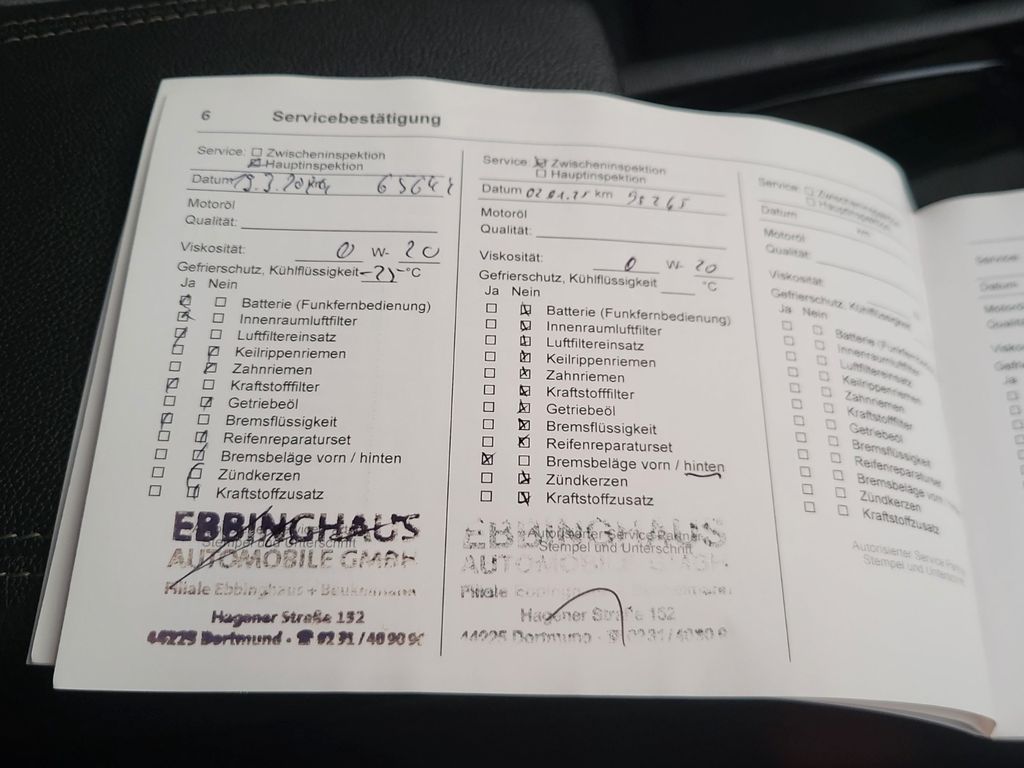 6 Servicebestätigung
Service: Zwischeninspektion
Hauptinspektion
Datum km
Motoröl
Qualität:
Viskosität: 0 W- 20
Gefrierschutz, Kühlflüssigkeit -25 -°C
Ja Nein
Batterie (Funkfernbedienung)
Innenraumluftfilter
Luftfiltereinsatz
Keilrippenriemen
Zahnriemen
Kraftstofffilter
Getriebeöl
Bremsflüssigkeit
Reifenreparaturset
Bremsbeläge vorn / hinten
Zündkerzen
Kraftstoffzusatz
EBBINGHAUS
Stempel und Unterschrift
AUTOMOBILE GMBH
Filiale Ebbinghaus + Beukmann
Hagener Straße 152
44225 Dortmund · ☎ 0231/
Service: Zwischeninspektion
Hauptinspektion
Datum 02.01.25 km 98265
Motoröl
Qualität:
Viskosität: 0 W- 20
Gefrierschutz, Kühlflüssigkeit °C
Ja Nein
Batterie (Funkfernbedienung)
Innenraumluftfilter
Luftfiltereinsatz
Keilrippenriemen
Zahnriemen
Kraftstofffilter
Getriebeöl
Bremsflüssigkeit
Reifenreparaturset
Bremsbeläge vorn / hinten
Zündkerzen
Kraftstoffzusatz
EBBINGHAUS
Autorisierter Service Partner
Stempel und Unterschrift
AUTOMOBILE GMBH
Filiale
Hagener Straße 152
44225 Dortmund · ☎ 0231/
Service: Zwischeninspektion
Hauptinspektion
Datum km
Motoröl
Qualität:
Viskosität:
Gefrierschutz, Kühlflüssigkeit
Ja Nein
Batterie (Funkfernbed
Innenraumluftfilter
Luftfiltereinsatz
Keilrippenriemen
Zahnriemen
Kraftstofffilter
Getriebeöl
Bremsflüssigkeit
Reifenreparaturset
Bremsbeläge vorn
Zündkerzen
Kraftstoffzusatz
Autorisierter Service Partner
Stempel und Unterschrift